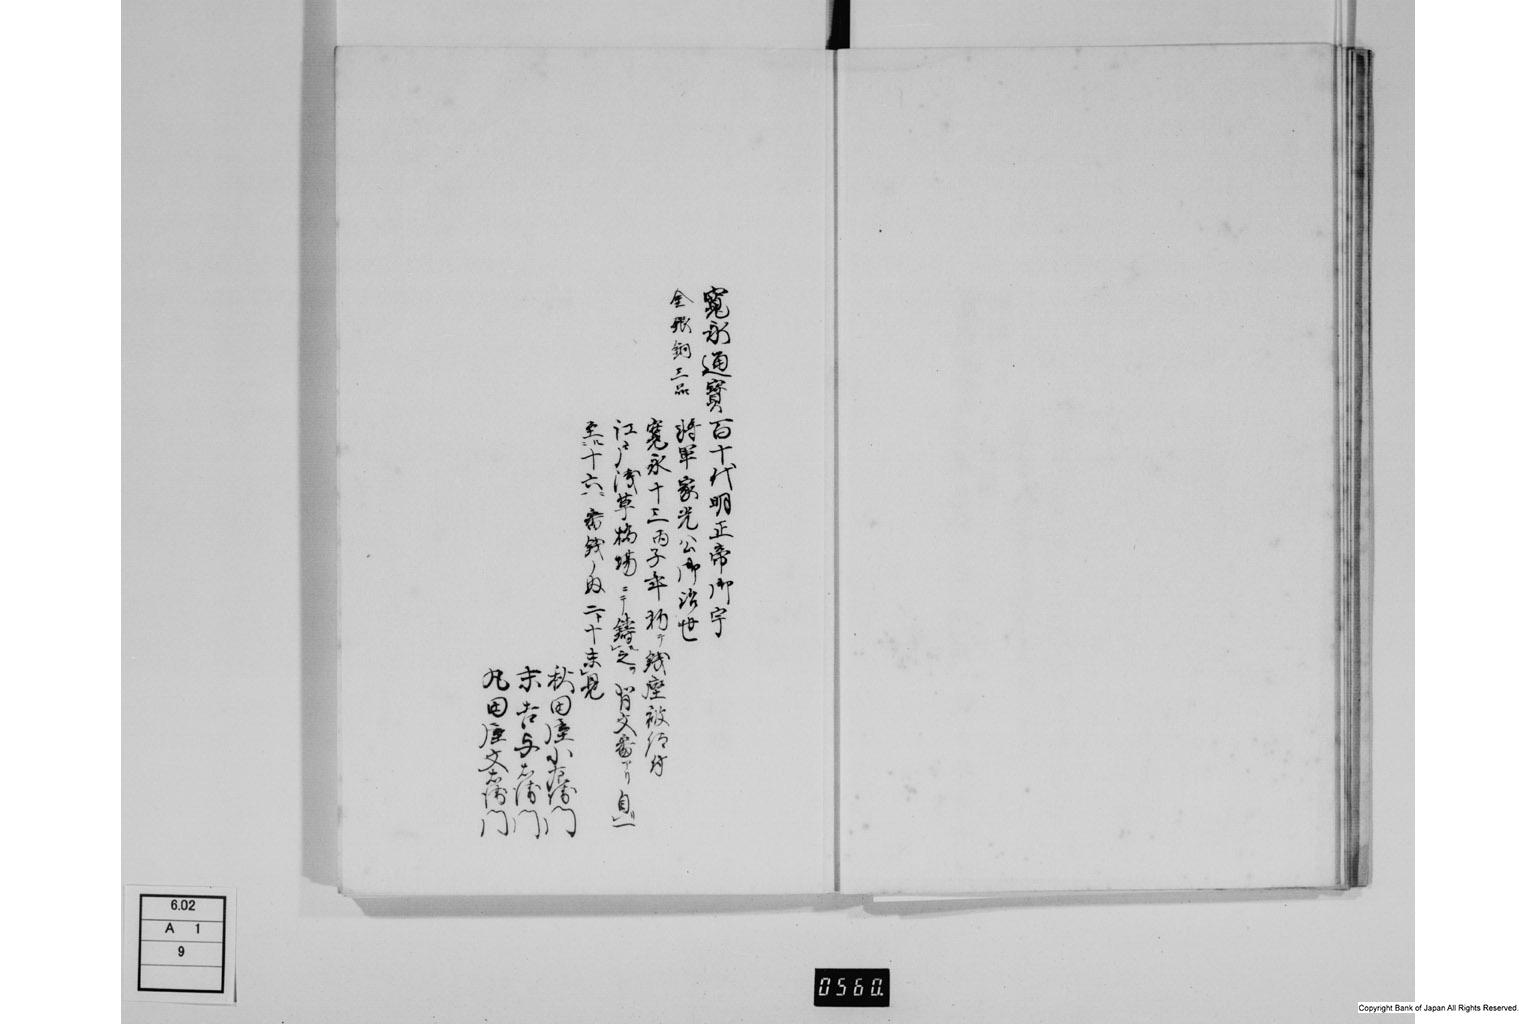 寛永通寳 百十代明正帝御宇
金銀銅三品 将軍家光公御治世
寛永十三丙子年初テ銭座被仰付
江戸浅草橋場ニテ鋳之 背文番アリ自一
至十六 番銭ノ
秋田屋小左衛門
末吉与右衛門
丸田屋文右衛門
6.02
A 1
9
0560.
Copyright Bank of Japan All Rights Reserved.